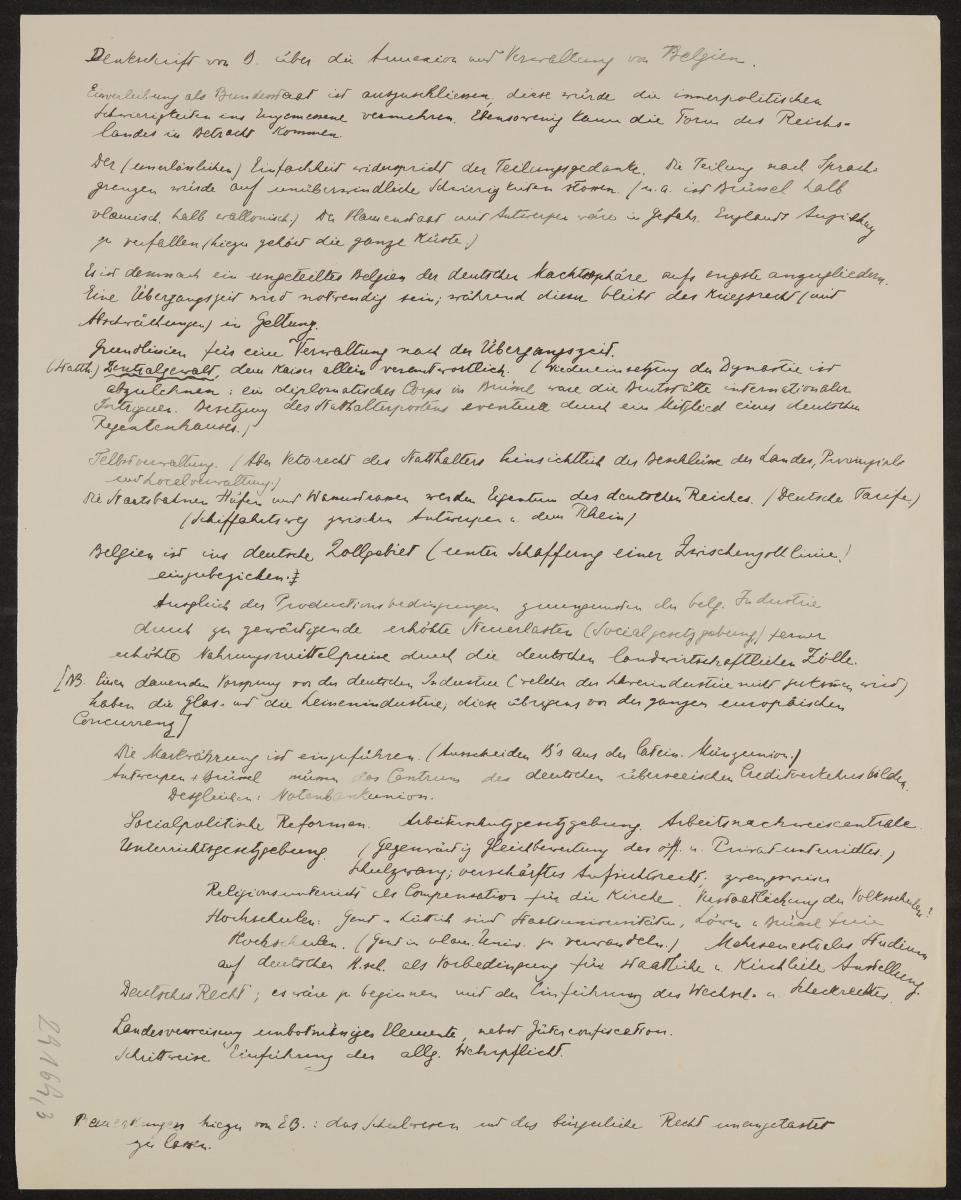 Denkschrift von B. über die Annexion und Verwaltung von Belgien.
Einverleibung als Bundesstaat ist auszuschliessen, diese würde die innerpolitischen
Schwierigkeiten ins Ungemessene vermehren. Ebensowenig kann die Form des Reichs-
landes in Betracht kommen.
Der (unerlässlichen) Einfachheit widerspricht der Teilungsgedanke. Die Teilung nach Sprach-
grenzen würde auf unüberwindliche Schwierigkeiten stossen. (u. a. ist Brüssel halb
vlamisch, halb wallonisch.) Der Vlamenstaat mit Antwerpen wäre in Gefahr, Englands
zu verfallen (hiezu gehört die ganze Küste.)
Es ist demnach ein ungeteiltes Belgien der deutschen Machtsphäre aufs engste anzugliedern.
Eine Übergangszeit wird notwendig sein; während dieser bleibt das Kriegsrecht (mit
Abschwächungen) in Geltung.
Grundlinien für eine Verwaltung nach der Übergangszeit.
(Statth.) Zentralgewalt, dem Kaiser allein verantwortlich. (Wiedereinsetzung der Dynastie ist
abzulehnen: ein diplomatisches Corps in Brüssel wäre die Brutstätte internationaler
Intriguen. Besetzung des Statthalterpostens eventuell durch ein Mitglied eines deutschen
Regentenhauses.)
Selbstverwaltung. (Aber Vetorecht des Statthalters hinsichtlich der Beschlüsse der Landes, Provinzials
und Localverwaltung.)
Die Staatsbahnen Häfen und Wasserstrassen werden Eigentum des deutschen Reiches. (Deutsche Tarife)
(Schiffahrtsweg zwischen Antwerpen u. dem Rhein)
Belgien ist ins deutsche Zollgebiet (unter Schaffung einer Zwischenzolllinie!
einzubeziehen.
Ausgleich der Productionsbedingungen zuungunsten der belg. Industrie
durch zu gewärtigende erhöhte Steuerlasten (Socialgesetzgebung) ferner
erhöhte Nahrungsmittelpreise durch die deutschen landwirtschaftlichen Zölle.
[NB. Einen dauernden Vorsprung vor der deutschen Industrie (welcher der nicht wird)
haben die Glas- und die Leinenindustrie, diese übrigens vor der ganzen europäischen
Concurrenz]
Die Markwährung ist einzuführen. (Ausscheiden B's aus der Latein. Münzunion.)
Antwerpen + Brüssel müssen das Centrum des deutschen überseeischen Creditverkehrs bilden.
Desgleichen: Notenbankunion.
Socialpolitische Reformen. Arbeiterschutzgesetzgebung. Arbeitsnachweiscentrale.
Unterrichtsgesetzgebung. (Gegenwärtig Gleichbewertung des öff. u. Privatunterrichtes.)
Schulzwang; verschärftes Aufsichtsrecht.
Religionsunterricht als Compensation für die Kirche. Verstaatlichung der Volksschulen?
Hochschulen: Gent u. Lüttich sind Staatsuniversitäten, Löwen u. Brüssel freie
Hochschulen. (Gent in vlam. Univ. zu verwandeln.) Mehrsemestriales Studium
auf deutschen H.sch. als Vorbedingung für staatliche u. kirchliche Anstellung.
Deutsches Recht; es wäre zu beginnen mit der Einführung des Wechsel- u. Scheckrechtes.
Landesverweisung unbotmässiger Elemente, nebst Güterconfiscation.
Schrittweise Einführung der allg. Wehrpflicht.
Bemerkungen hiezu von EB.: das Schulwesen und das bürgerliche Recht unangetastet
zu lassen.
29169,3